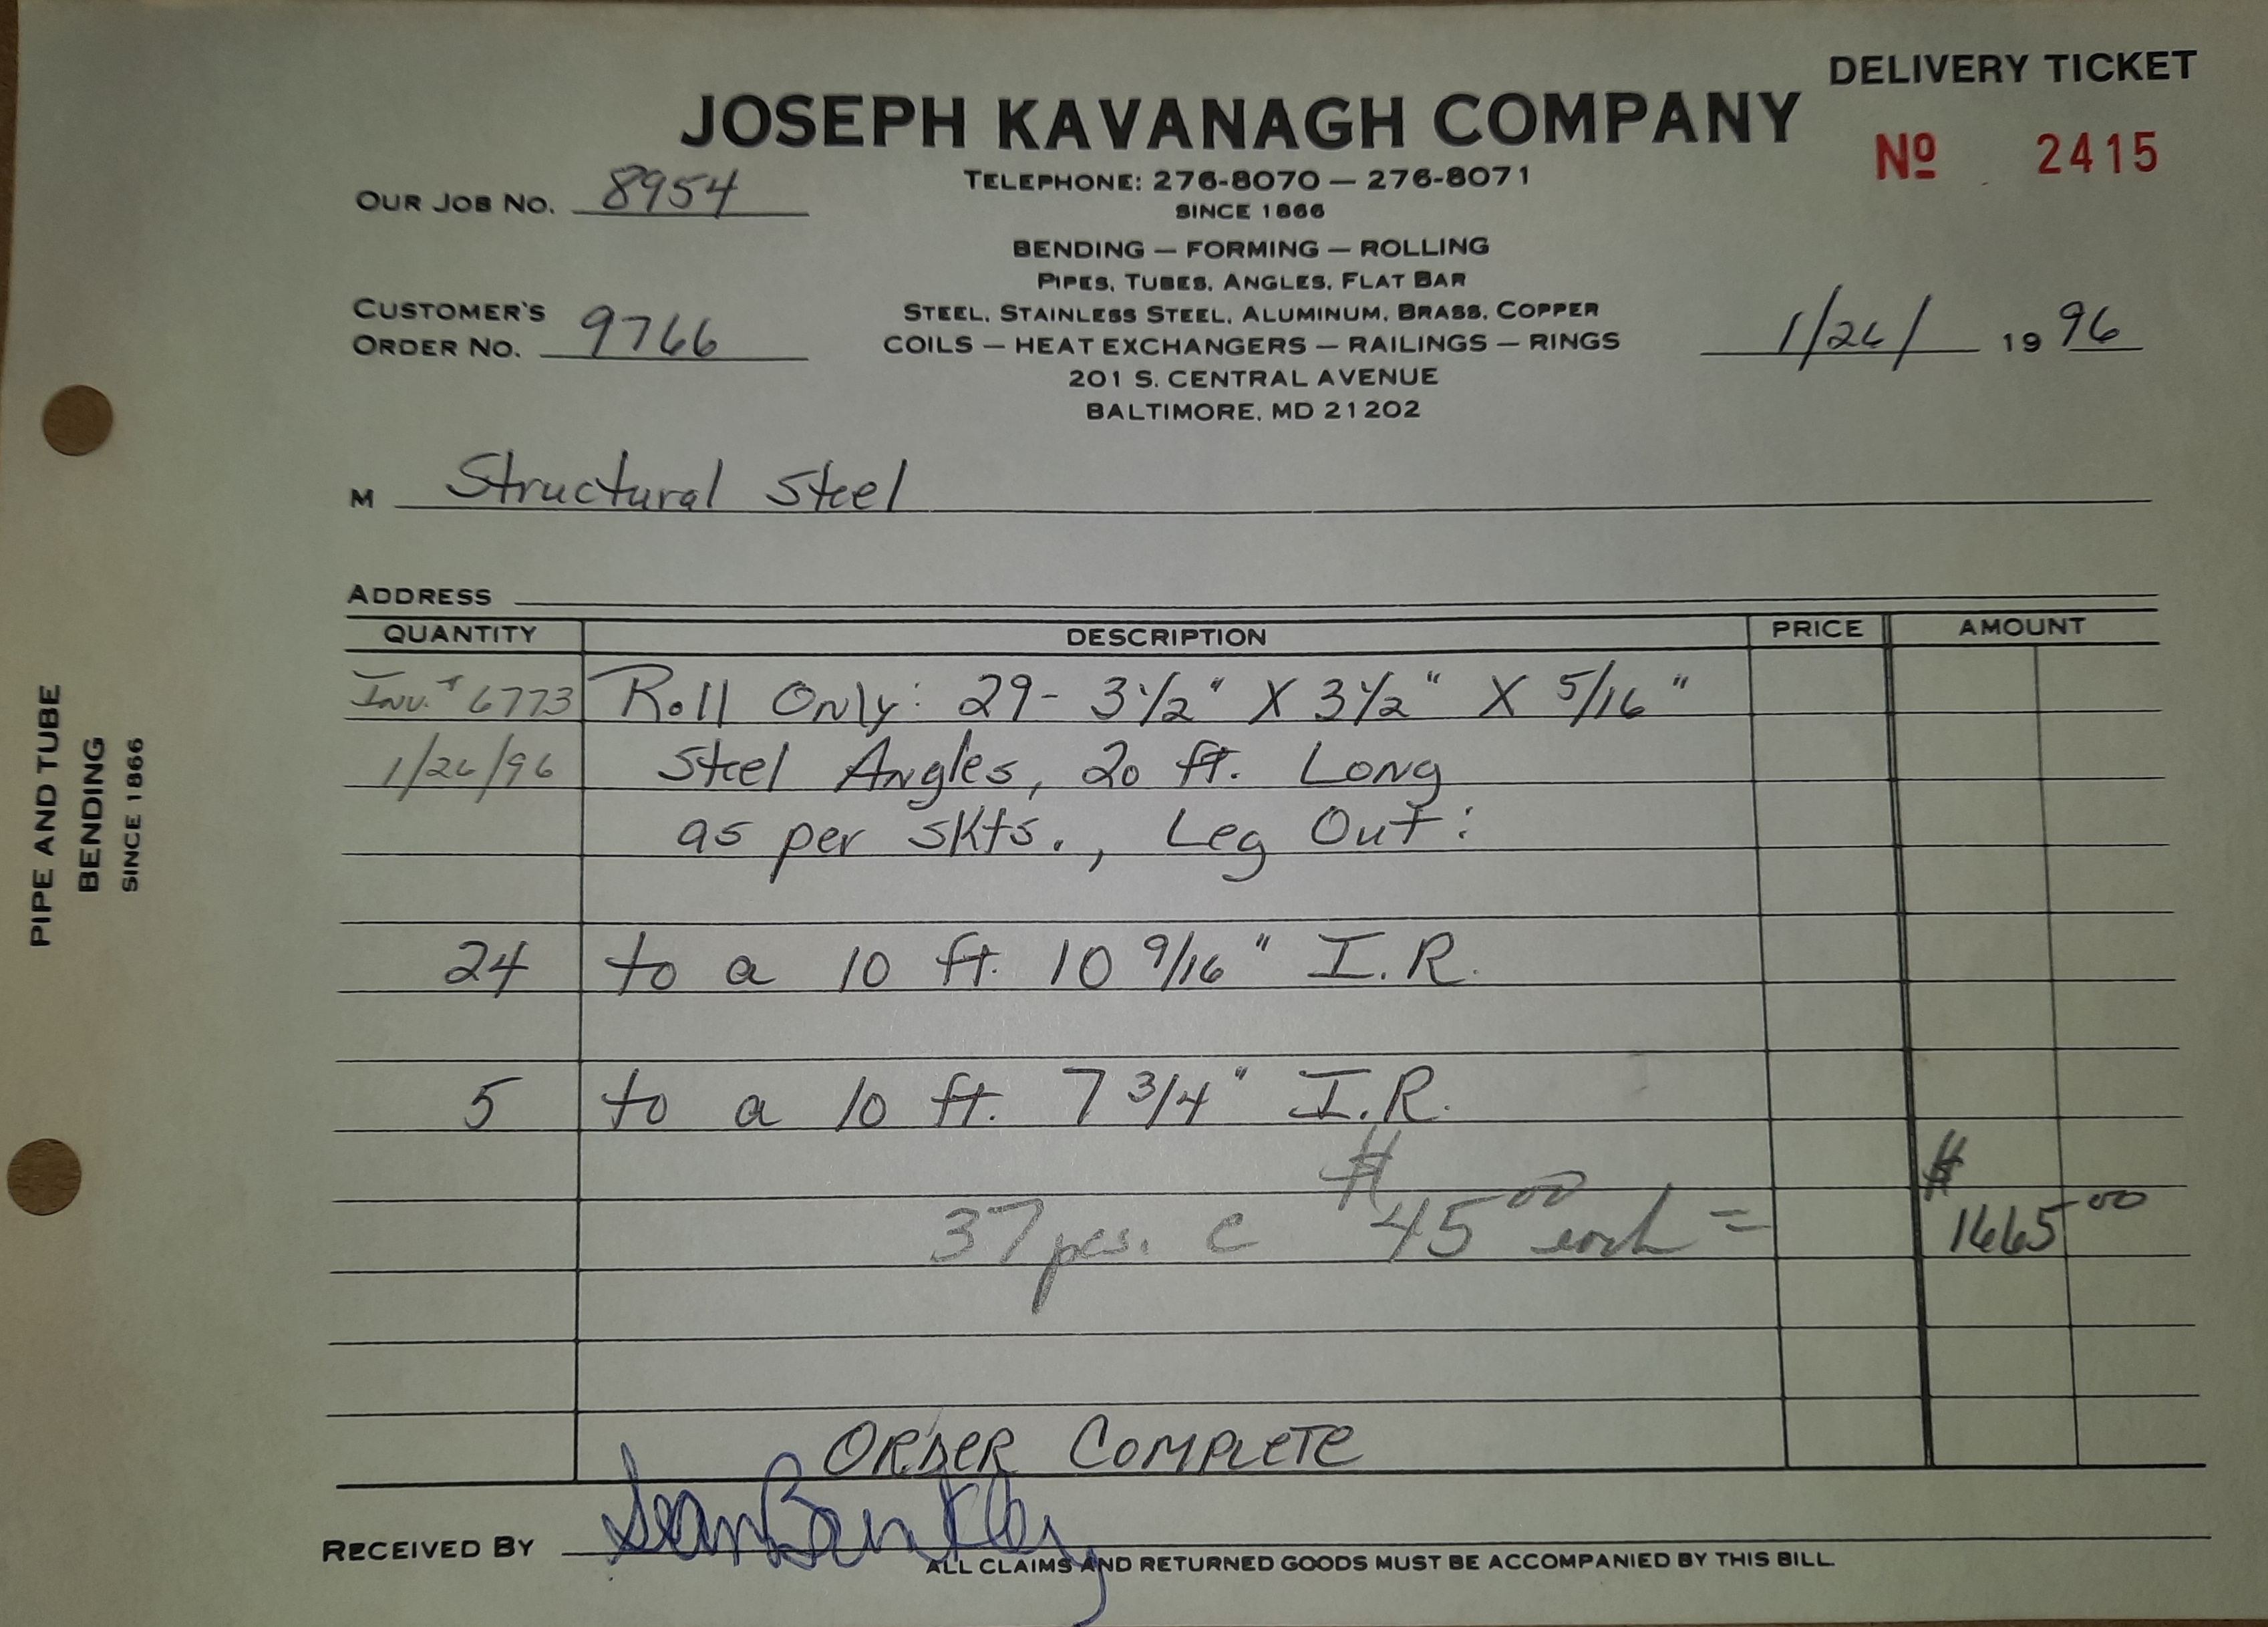 DELIVERY TICKET
JOSEPH KAVANAGH COMPANY
Nº 2415
TELEPHONE: 276-8070 — 276-8071
OUR JOB NO. 8954
SINCE 1866
BENDING — FORMING — ROLLING
PIPES, TUBES, ANGLES, FLAT BAR
CUSTOMER'S
ORDER NO. 9766
STEEL, STAINLESS STEEL, ALUMINUM, BRASS, COPPER
COILS — HEAT EXCHANGERS — RAILINGS — RINGS
1/26/ 1996
201 S. CENTRAL AVENUE
BALTIMORE, MD 21202
M Structural Steel
ADDRESS
QUANTITY DESCRIPTION PRICE AMOUNT
Inv. # 6773 Roll Only: 29- 3 1/2" X 3 1/2" X 5/16"
1/26/96 Steel Angles, 20 ft. Long
as per skts., Leg Out:
24 to a 10 ft. 10 9/16" I.R.
5 to a 10 ft. 7 3/4" I.R.
37 pcs. @ $45.00 each = $1665.00
ORDER COMPLETE
RECEIVED BY Sean
ALL CLAIMS AND RETURNED GOODS MUST BE ACCOMPANIED BY THIS BILL.
PIPE AND TUBE
BENDING
SINCE 1866